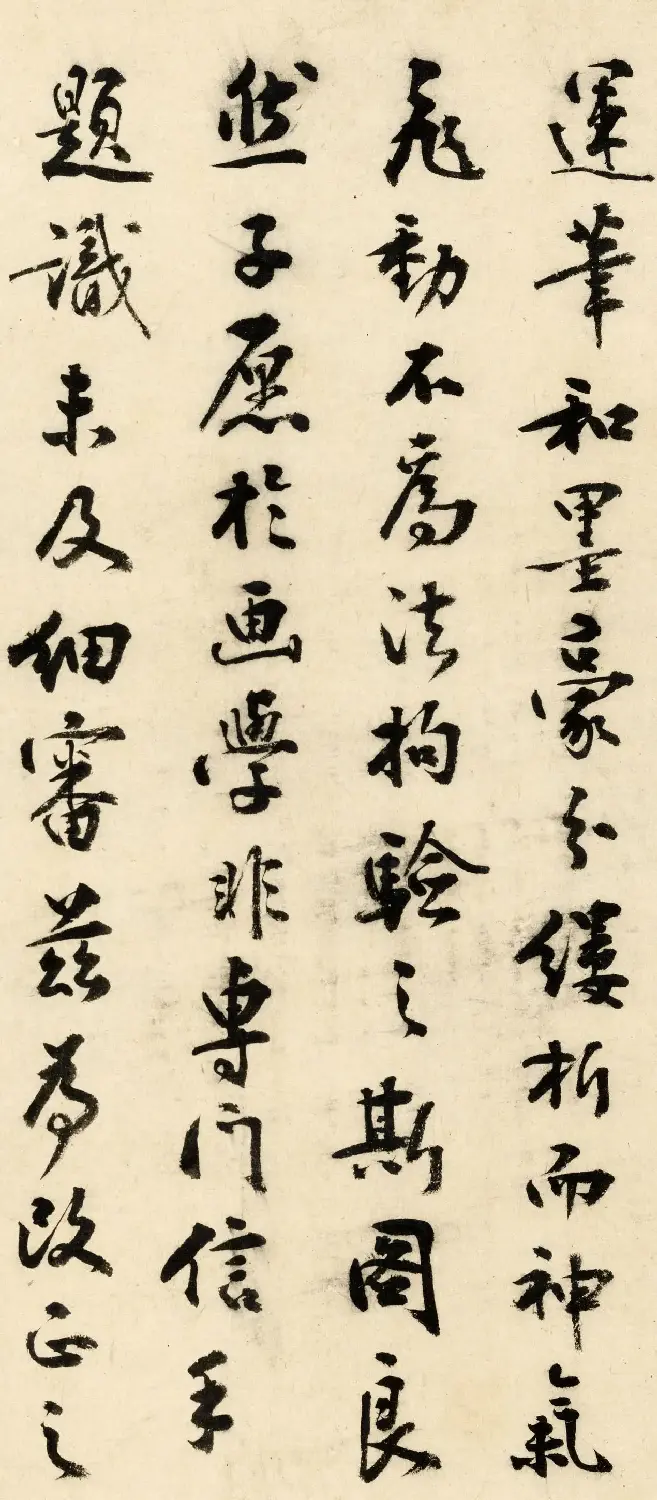 運筆和墨豪分縷析而神氣
飛動不為法拘驗之斯圖良
然子愿於画學非専门信手
題識未及細審茲為改正之